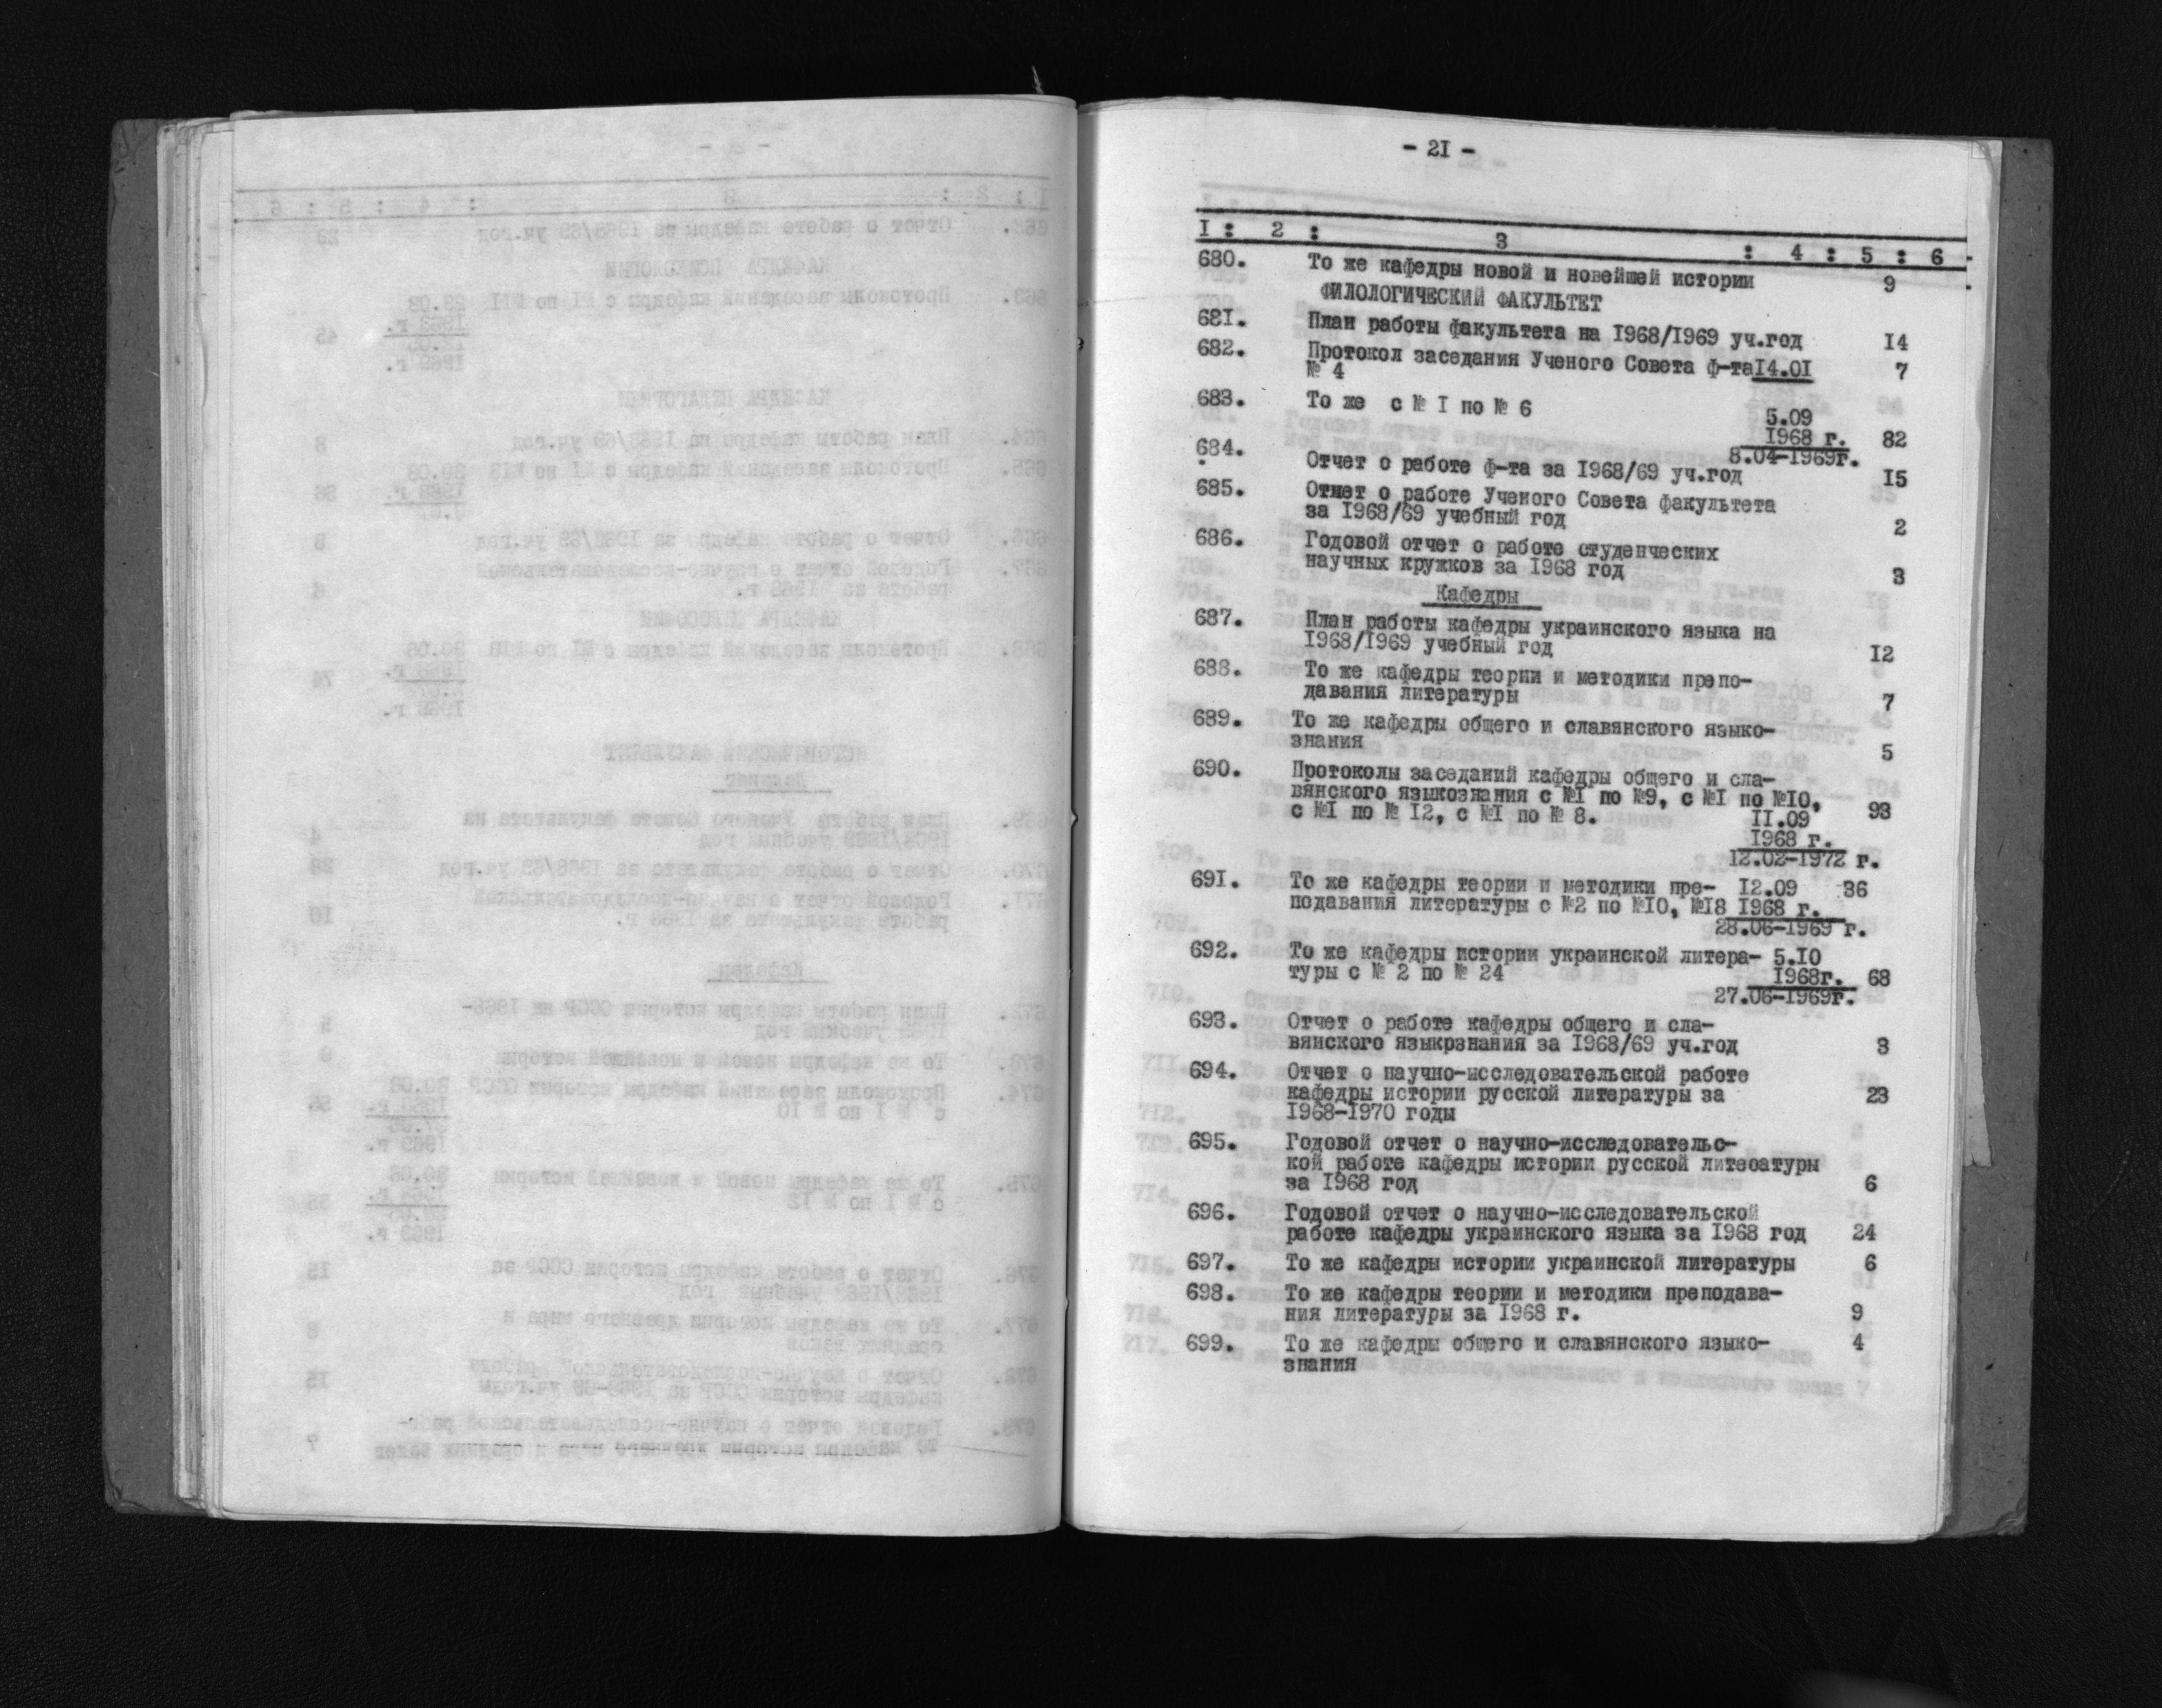 - 2I -
I : 2 : 3 : 4 : 5 : 6
680. То же кафедры новой и новейшей истории 9
ФИЛОЛОГИЧЕСКИЙ ФАКУЛЬТЕТ
68I. План работы факультета на I968/I969 уч.год I4
682. Протокол заседания Ученого Совета ф-таI4.0I 7
№ 4
683. То же с № I по № 6
5.09
I968 г. 82
8.04-I969г.
684. Отчет о работе ф-та за I968/69 уч.год I5
685. Отчет о работе Ученого Совета факультета
за I968/69 учебный год 2
686. Годовой отчет о работе студенческих
научных кружков за I968 год 3
Кафедры
687. План работы кафедры украинского языка на
I968/I969 учебный год I2
688. То же кафедры теории и методики препо-
давания литературы 7
689. То же кафедры общего и славянского языко-
знания 5
690. Протоколы заседаний кафедры общего и сла-
вянского языкознания с №I по №9, с №I по №I0,
с №I по № I2, с №I по № 8. 93
II.09
I968 г.
I2.02-I972 г.
69I. То же кафедры теории и методики пре- I2.09 36
подавания литературы с №2 по №I0, №I8 I968 г.
28.06-I969 г.
692. То же кафедры истории украинской литера- 5.I0
туры с № 2 по № 24 I968г. 68
27.06-I969г.
693. Отчет о работе кафедры общего и сла-
вянского языкрзнания за I968/69 уч.год 3
694. Отчет о научно-исследовательской работе
кафедры истории русской литературы за 23
I968-I970 годы
695. Годовой отчет о научно-исследовательс-
кой работе кафедры истории русской литеоатуры
за I968 год 6
696. Годовой отчет о научно-исследовательской
работе кафедры украинского языка за I968 год 24
697. То же кафедры истории украинской литературы 6
698. То же кафедры теории и методики преподава-
ния литературы за I968 г. 9
699. То же кафедры общего и славянского языко- 4
знания